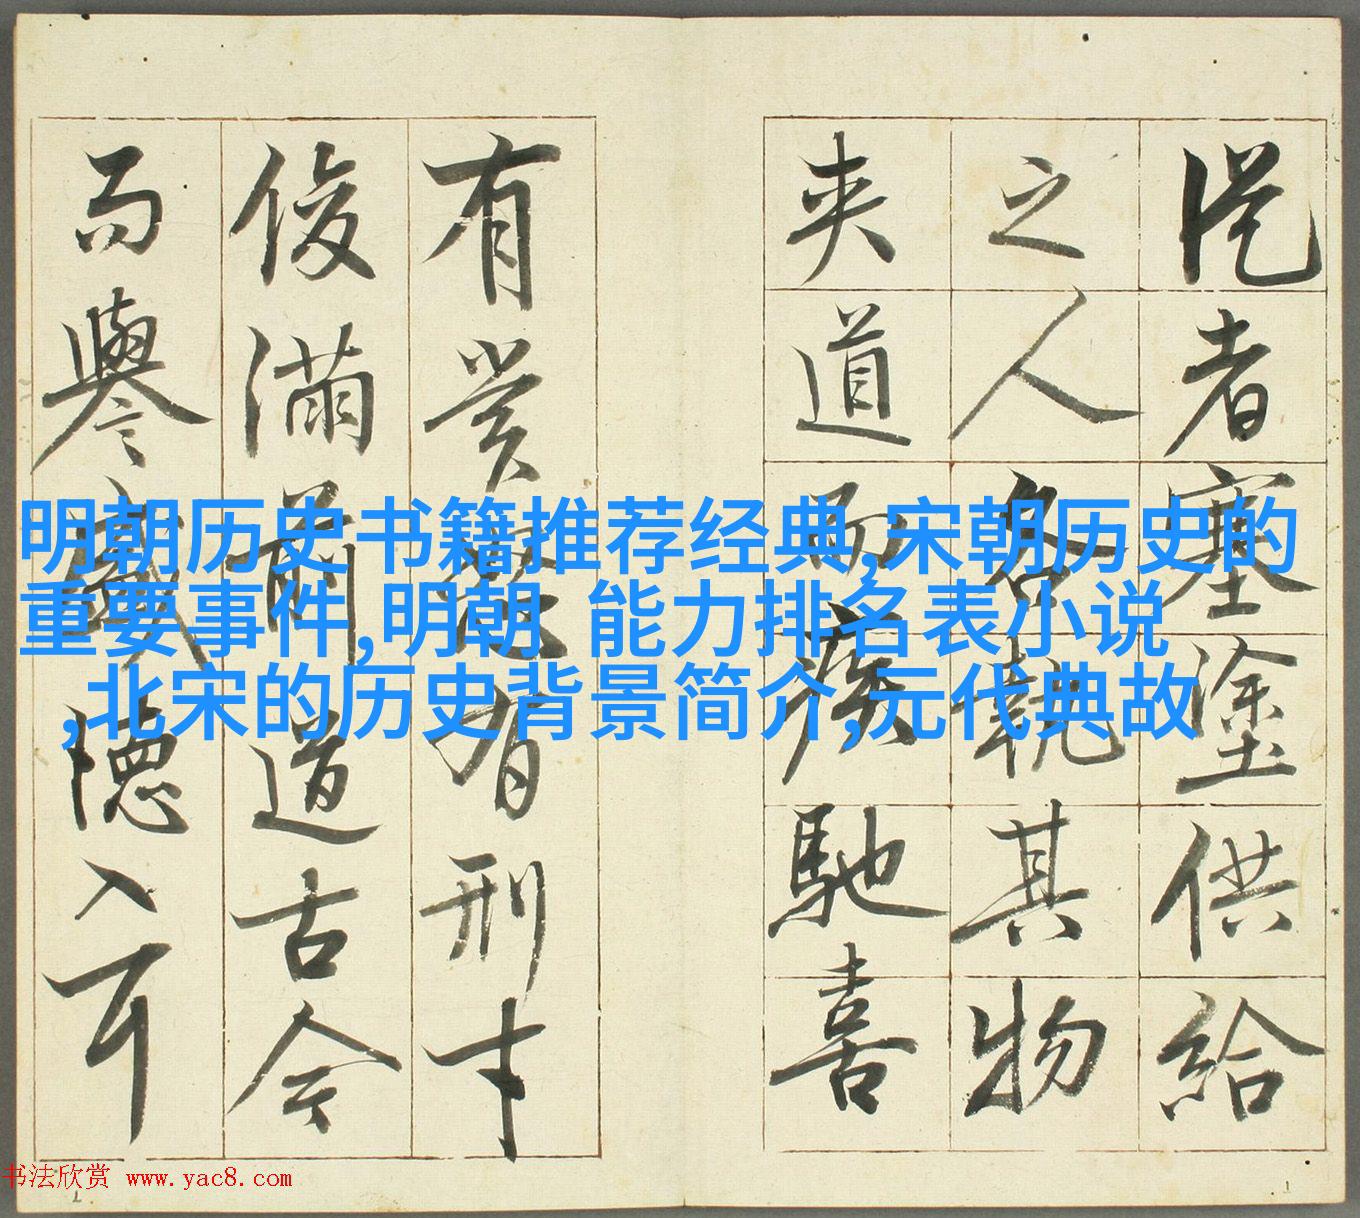 從者塞塗供給
之人各執其物
夾道而疾馳喜
有賞怒有刑才
俊滿前道古今
而譽盛德入耳
明朝历史书籍推荐经典,宋朝历史的
重要事件,明朝  能力排名表小说
,北宋的历史背景简介,元代典故
书法欣赏 www.yac8.com